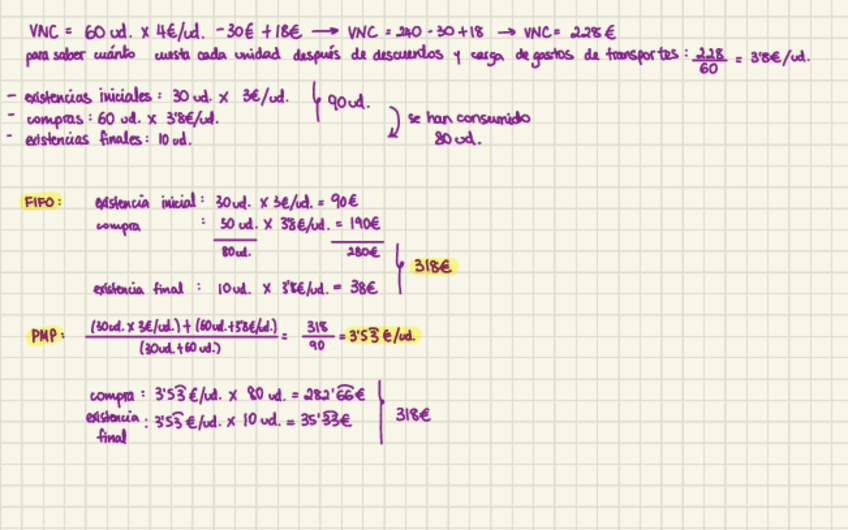 VNC = 60 ud. x 4€/ud. - 30€ + 18€ → VNC = 240 - 30 + 18 → VNC = 228€
para saber cuánto cuesta cada unidad después de descuentos y carga de gastos de transportes : 228/60 = 3'8€/ud.
- existencias iniciales : 30 ud. x 3€/ud.
- compras : 60 ud. x 3'8€/ud.
- existencias finales : 10 ud.
90 ud.
se han consumido
80 ud.
FIFO : existencia inicial : 30 ud. x 3€/ud. = 90€
compra : 50 ud. x 3'8€/ud. = 190€
80ud. 280€
318€
existencia final : 10 ud. x 3'8€/ud. = 38€
PMP : (30ud. x 3€/ud.) + (60ud. + 3'8€/ud.) / (30ud. + 60 ud.) = 318/90 = 3'53̂ €/ud.
compra : 3'53̂ €/ud. x 80 ud. = 282'66̂€
existencia final : 3'53̂ €/ud. x 10 ud. = 35'33̂€
318€